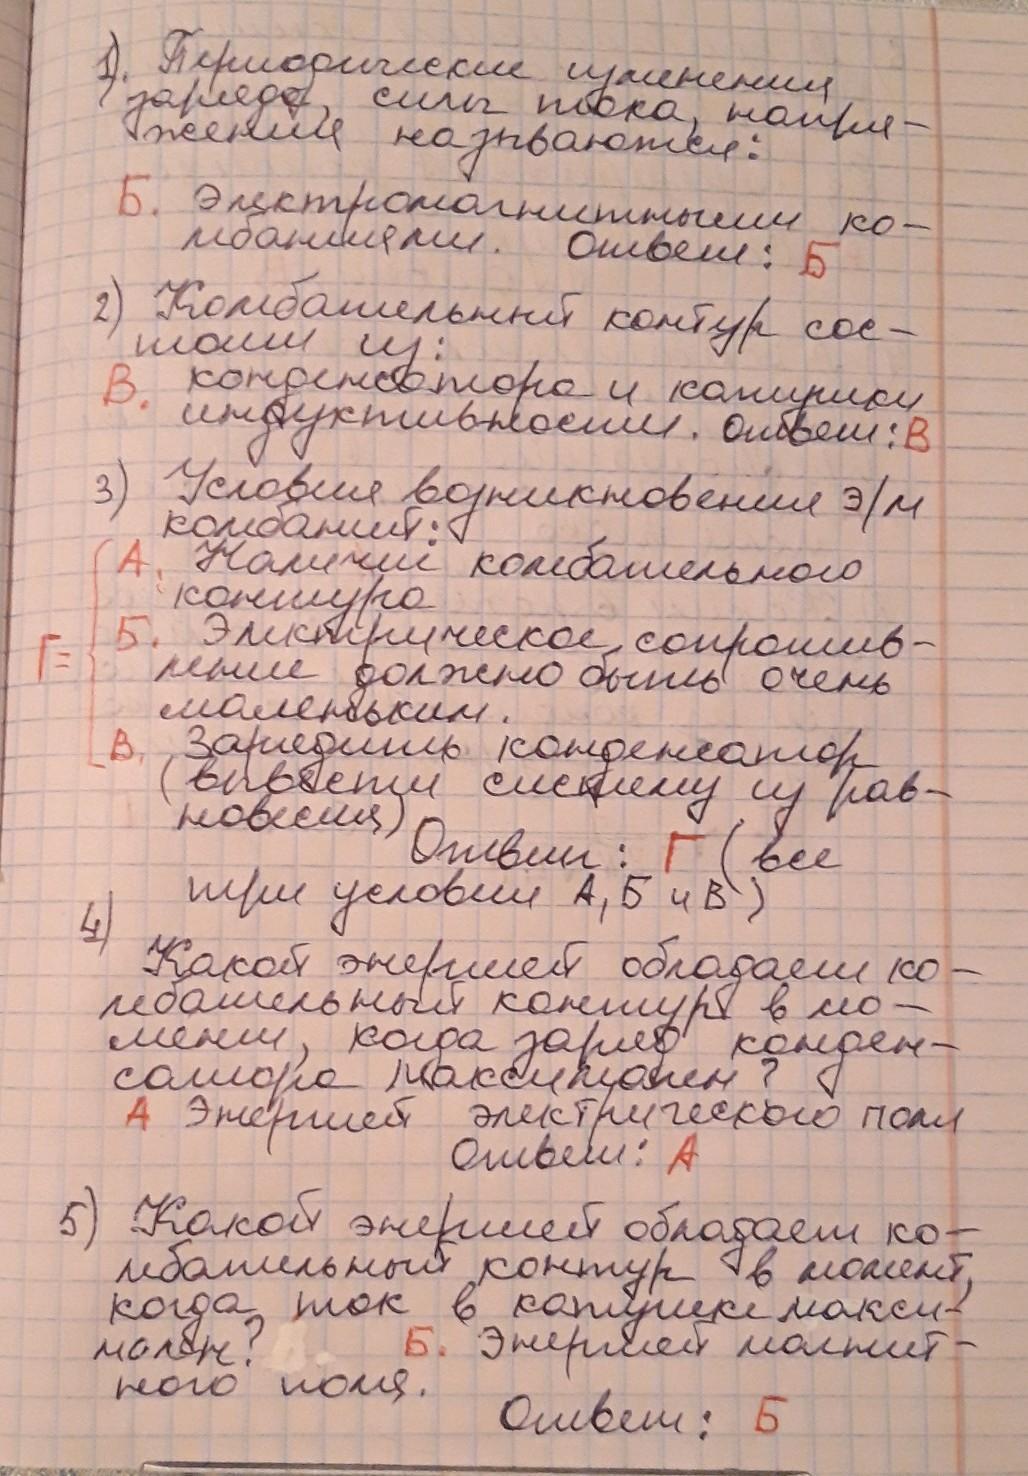 1). Периодические изменения
заряда, силы тока, напря-
жения называются:
Б. электромагнитными ко-
лебаниями. Ответ: Б
2) Колебательный контур сос-
тоит из:
В. конденсатора и катушки
индуктивности. Ответ: В
3) Условия возникновения э/м
колебаний:
А. Наличие колебательного
контура
Г= Б. Электрическое сопротив-
ление должно быть очень
маленьким.
В. Зарядить конденсатор
(вывести систему из рав-
новесия)
Ответ: Г (все
три условия А, Б и В)
4)
Какой энергией обладает ко-
лебательный контур в мо-
мент, когда заряд конден-
сатора максимален?
А Энергией электрического поля
Ответ: А
5) Какой энергией обладает ко-
лебательный контур в момент,
когда ток в катушке макси-
мален? Б. Энергией магнит-
ного поля.
Ответ: Б